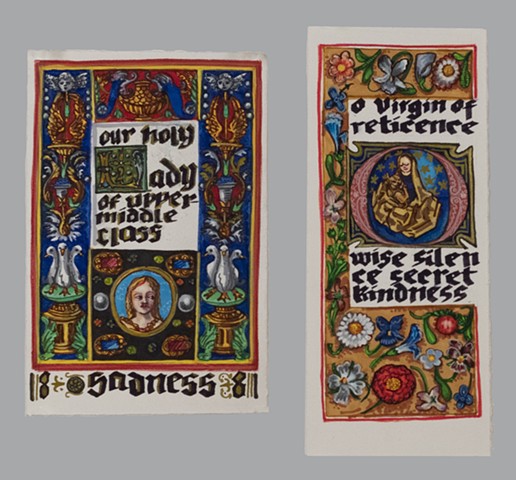 our holy
Lady
of upper
middle
class
sadness
o Virgin of
reticence
wise silen
ce secret
kindness